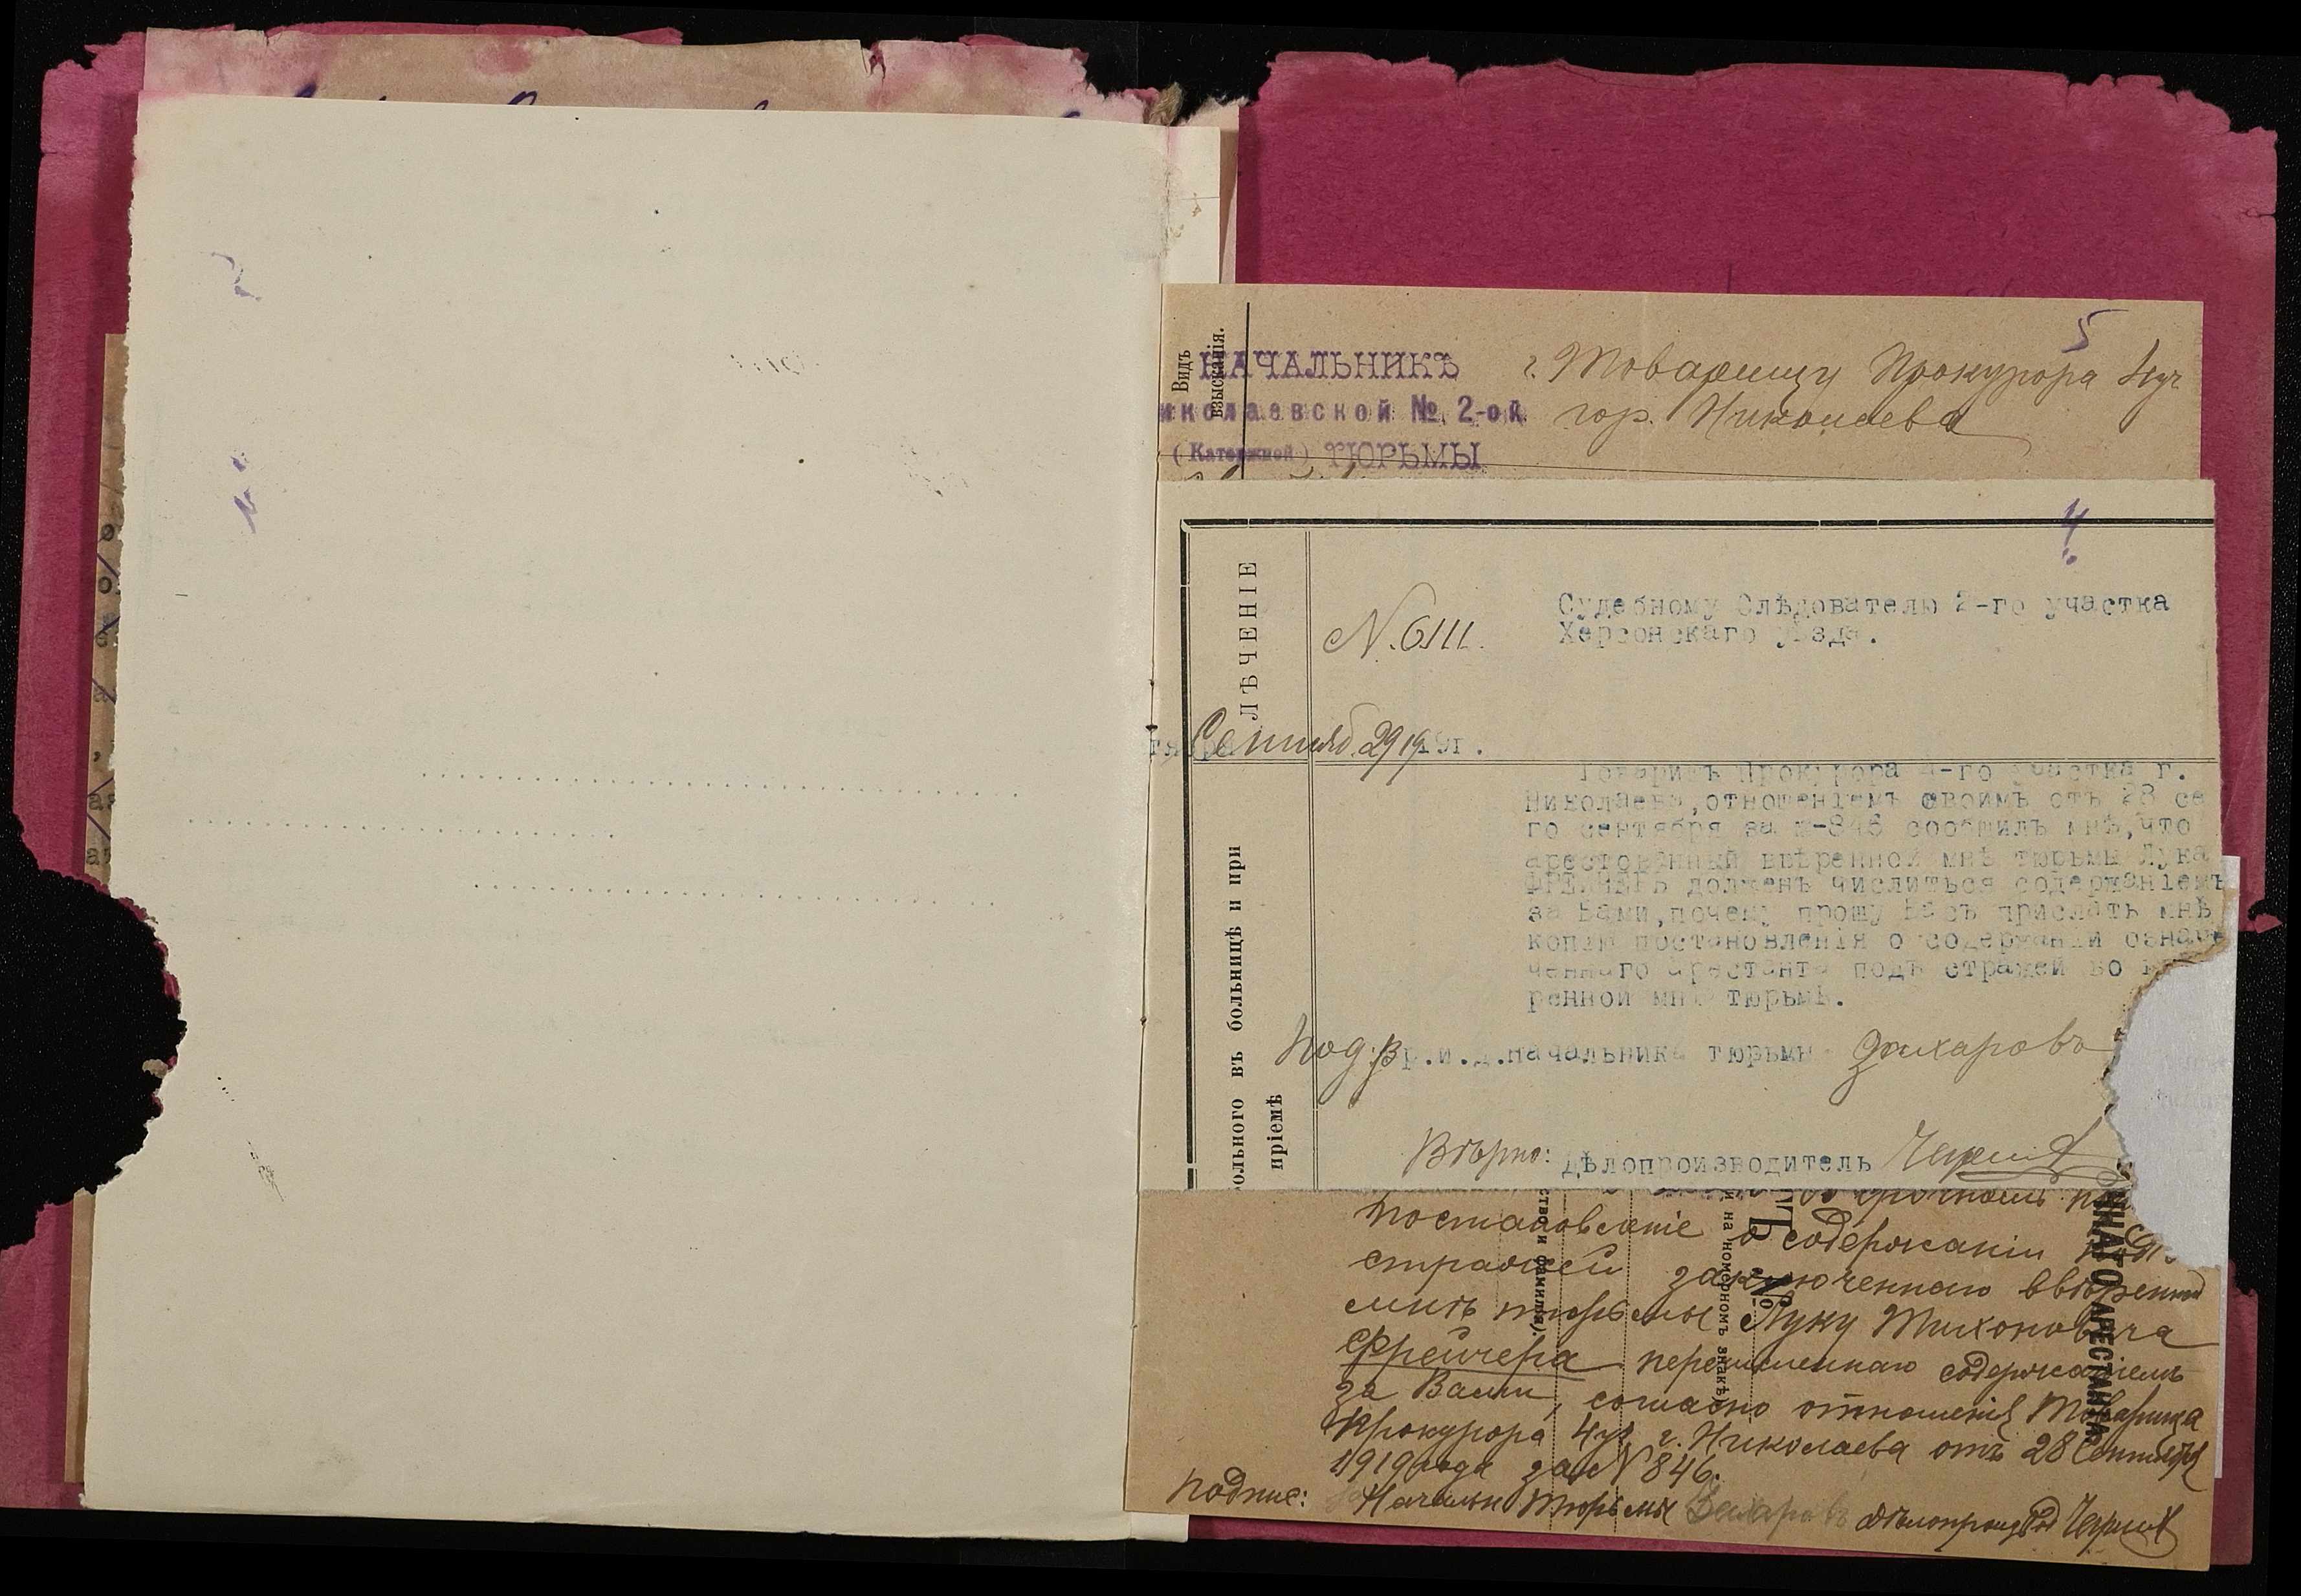 5
Видъ
взысканія.
НАЧАЛЬНИКЪ
иколаевской № 2-ой
(Каторжной) ТЮРЬМЫ
г. Товарищу Прокурора 4 уч
гор. Николаева
4
ЛѢЧЕНІЕ
ольного въ больницѣ и при
пріемѣ
N. 6111.
Судебному Слѣдователю 2-го участка
Херсонскаго уѣзда.
Сентяб. 29 1919г.
Товарищъ Прокурора 4-го участка г.
Николаева, отношеніемъ своимъ отъ 28 се
го сентября за №-846 сообщилъ мнѣ, что
арестованный ввѣренной мнѣ тюрьмы Лука
ФРЕЙЧЕРЪ долженъ числиться содержаніемъ
за Вами, почему прошу Васъ прислать мнѣ
копію постановленія о содержаніи означе
ченнаго арестанта подъ стражей во ввѣ
ренной мнѣ тюрьмѣ.
Под. Вр.и.д.начальника тюрьмы Захаровъ
Вѣрно: Дѣлопроизводитель
постановленіе о содержаніи подъ
стражей заключеннаго ввѣренной
мнѣ тюрьмы Луку Тихоновича
Фрейчера перечисленнаго содержаніемъ
за Вами, согласно отношенія Товарища
Прокурора 4 уч. г. Николаева отъ 28 Сентября
1919 года за N 846.
подпис: Начальн Тюрьмы Захаровъ
ство и фамилія).
и на номерномъ знакѣ)
№
ННАГО АРЕСТАНТА